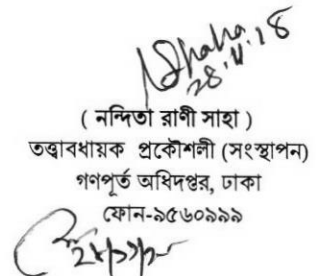 28.11.18
( নন্দিতা রাণী সাহা )
তত্ত্বাবধায়ক প্রকৌশলী (সংস্থাপন)
গণপূর্ত অধিদপ্তর, ঢাকা
ফোন-৯৫৬০৯৯৯